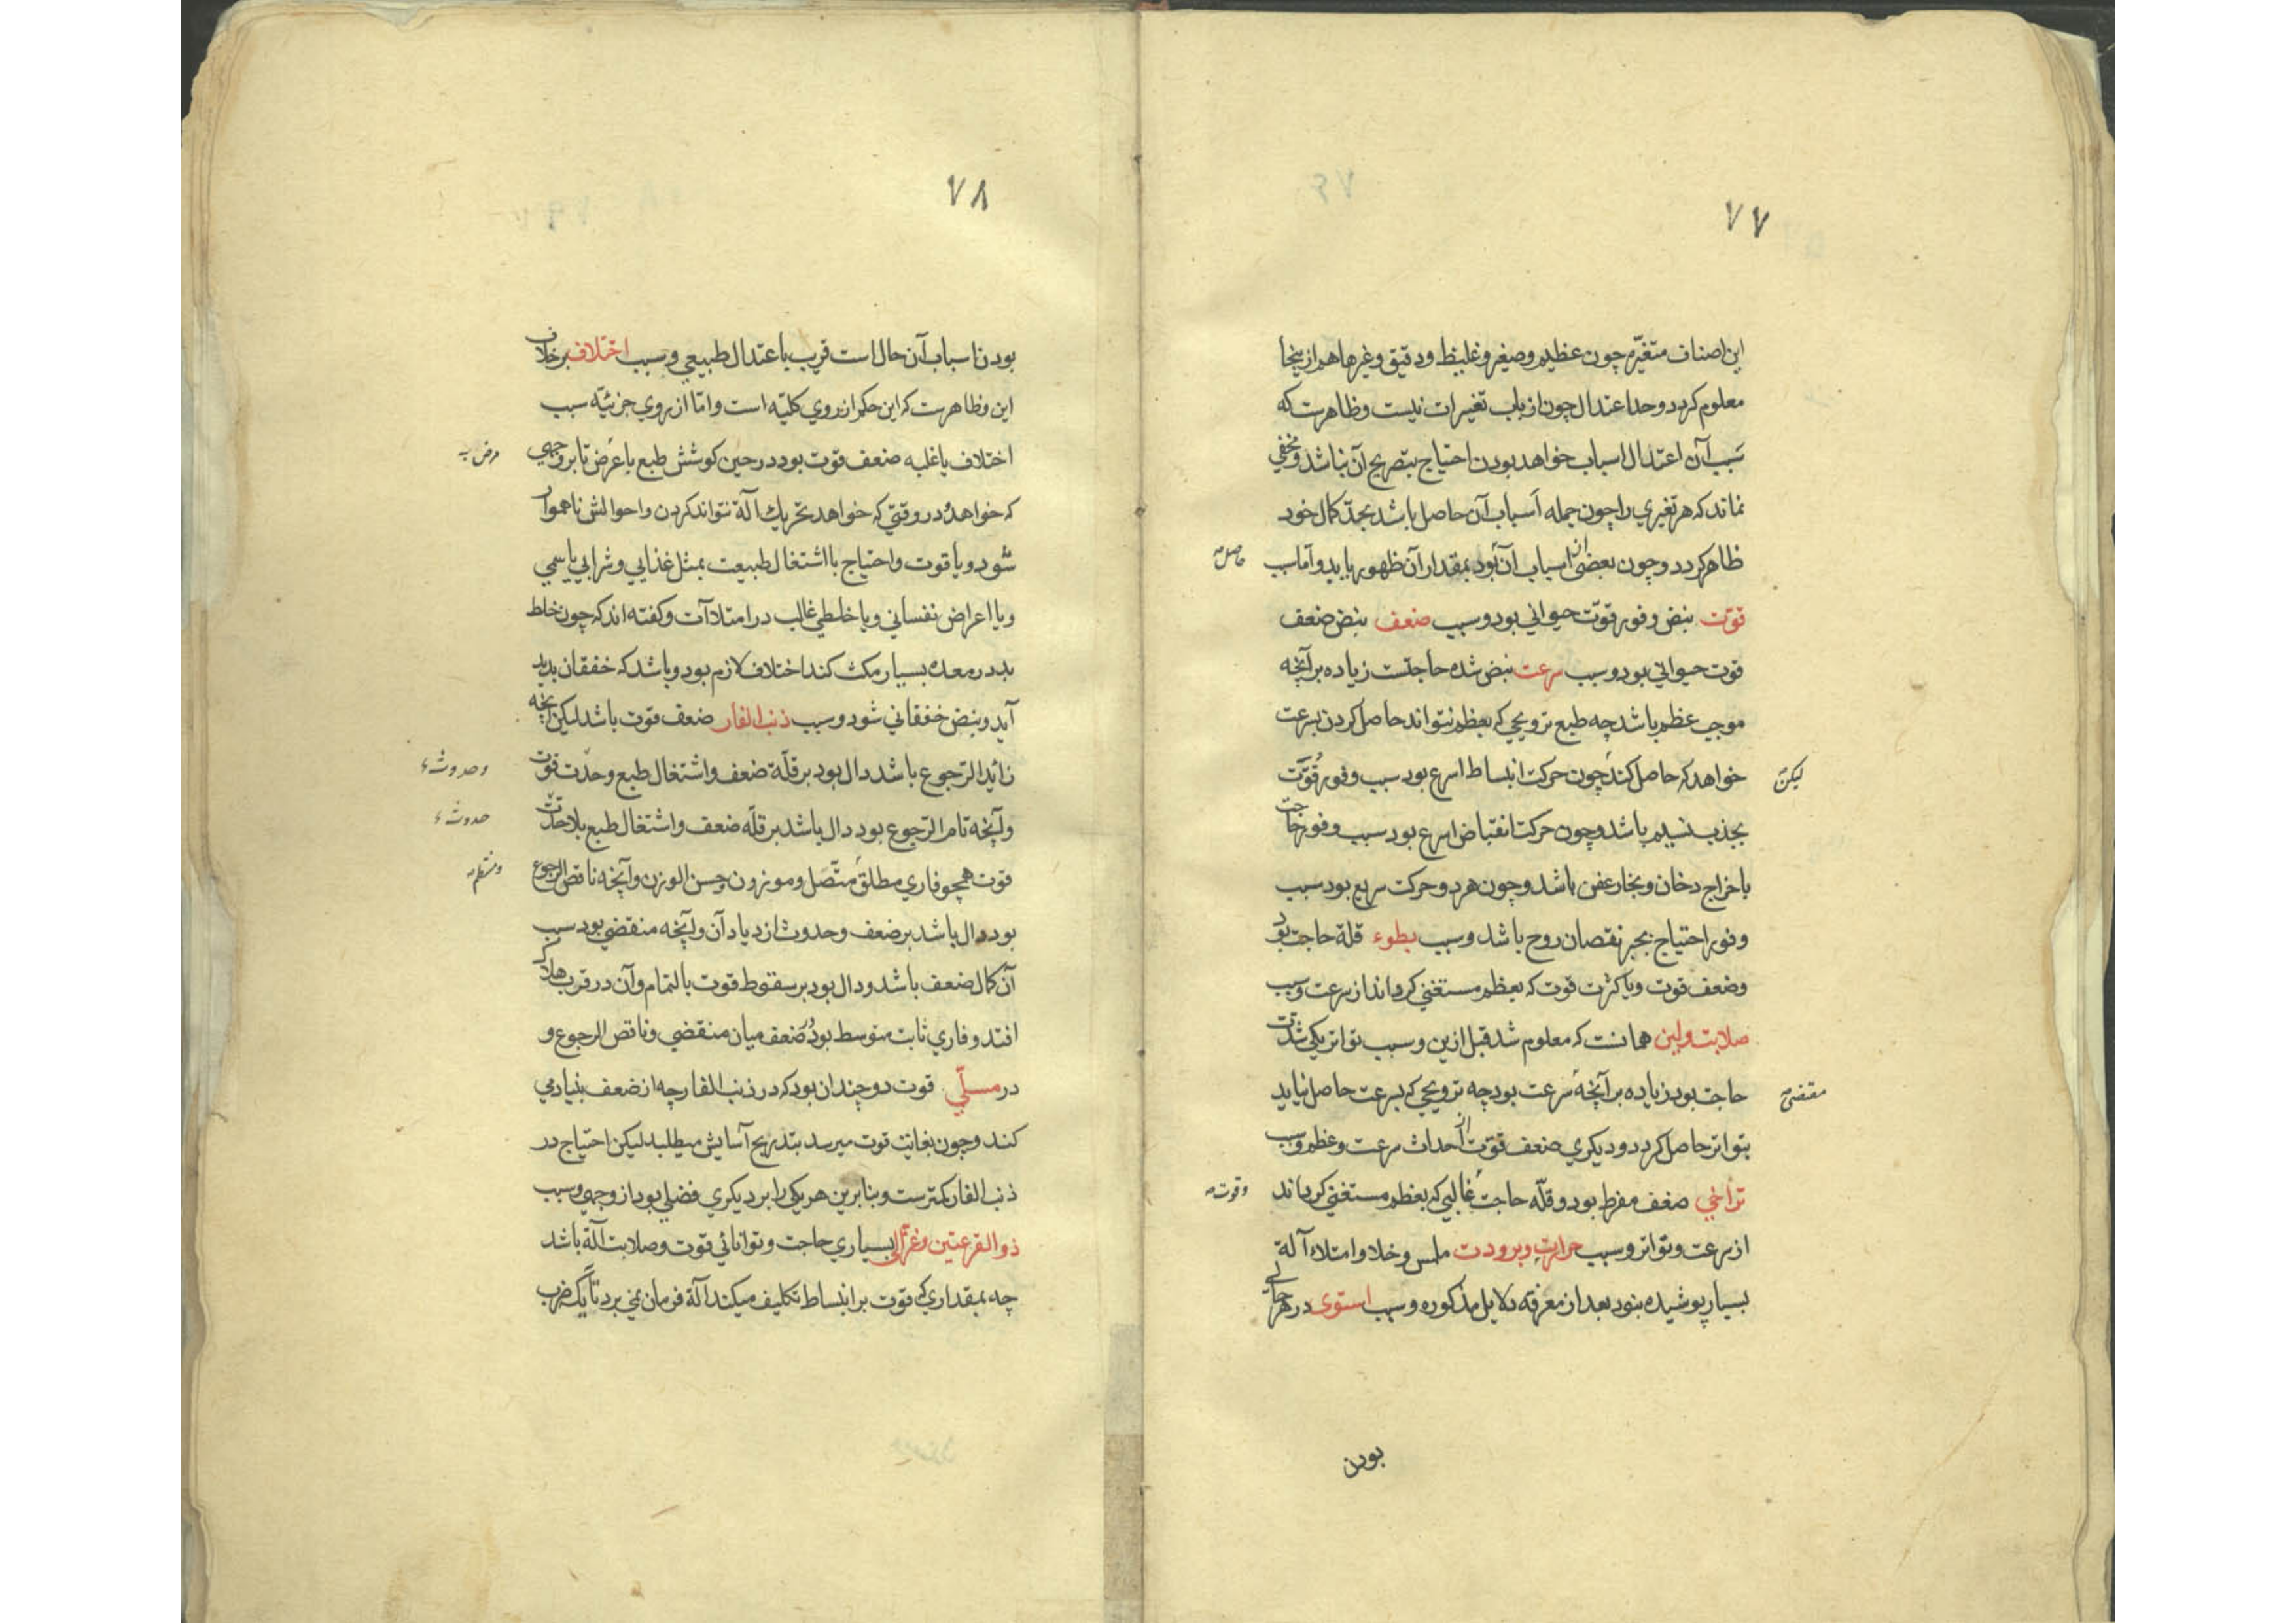 ۷۷
این اصناف متغیّره چون عظیم و صغیر و غلیظ و دقیق و غیرها هم ازینجا
معلوم کردد و حد اعتدال چون از باب تغییرات نیست و ظاهرست که
سبب آن اعتدال اسباب خواهد بودن احتیاج بتصریح آن نباشد و مخفی
نماند که هر تغیری را چون جمله اسباب آن حاصل باشد بحد کمال خود
ظاهر کردد و چون بعضی از اسباب آن بود بمقدار آن ظهور یابد و اما سبب
حاصل
قوّت نبض وفور قوّت حیوانی بود و سبب ضعف نبض ضعف
قوت حیوانی بود و سبب سرعت نبض شده حاجتست زیاده بر آنچه
موجب عظم باشد چه طبع ترویحی که بعظم نتواند حاصل کردن بسرعت
خواهد که حاصل کند چون حرکت انبساط اسرع بود سبب وفور قوّت
لیکن
بجذب نسیم باشد و چون حرکت انقباض اسرع بود سبب وفور حاجت
باخراج دخان و بخار عفن باشد و چون هر دو حرکت سریع بود سبب
وفور احتیاج بجبر نقصان روح باشد و سبب بطوء قلة حاجت بود
وضعف قوت و یا کثرت قوت که بعظم مستغنی کرداند از سرعت و سبب
صلابت ولین همانست که معلوم شد قبل ازین و سبب تواتر یکی شدّت
حاجت بود زیاده بر آنچه سرعت بود چه ترویحی که بسرعت حاصل نیاید
مقتضی
بتواتر حاصل کردد و دیکری ضعف قوّت از احداث سرعت و عظم و سبب
تراخی ضعف مفرط بود و قلّه حاجت غالبی که بعظم مستغنی کرداند
وقوت
از سرعت و تواتر و سبب حرارت و برودت ملمس و خلا و امتلاء آلة
بسیار پوشیده بنود بعد از معرفه دلایل مذکوره و سبب استوی در هر حالی
بودن
۷۸
بودن اسباب آن حال است قریب باعتدال طبیعی و سبب اختلاف برخلاف
این و ظاهرست که این حکم از روی کلیّه است و امّا از روی جزئیّه سبب
اختلاف یا غلبه ضعف قوت بود در حین کوشش طبع با عَرَض تا بر وجهی
مرض
که خواهد و در وقتی که خواهد تحریك آلة نتواند کردن و احوالش ناهموار
شود و یا قوت و احتیاج با اشتغال طبیعت بمثل غذایی و شرابی یا سمی
و یا اعراض نفسانی و یا خلطی غالب در امتلاآت و کفته اند که چون خلط
بد در معده بسیار مکث کند اختلاف لازم بود و باشد که خفقان پدید
آید و نبض خفقانی شود و سبب ذنب الفار ضعف قوت باشد لیکن آنچه
زائد الرّجوع باشد دال بود بر قلّة ضعف و اشتغال طبع و حدّت قوت
وحدوث
و آنچه تام الرّجوع بود دال باشد بر قلّه ضعف و اشتغال طبع بلا حدّت
حدوث
قوت همچو فاری مطلق متّصل و موزون و حسن الوزن و آنچه ناقص الرجوع
ومنتظم
بود دال باشد بر ضعف و حدوث ازدیاد آن و آنچه منقضی بود سبب
آن کمال ضعف باشد و دال بود بر سقوط قوت بالتمام و آن در قرب هلاک
افتد و فاری ثابت متوسط بود در ضعف میان منقضی و ناقص الرجوع و
در مسلّی قوت دو چندان بود که در ذنب الفار چه از ضعف بنیاد می
کند و چون بغایت قوت میرسد بتدریج آسایش میطلبد لیکن احتیاج در
ذنب الفار کمترست و بنابرین هر یکی را بر دیکری فضلی بود از وجهی و سبب
ذو القرعتین و غزالی بسیاری حاجت و توانائی قوت و صلابت آلة باشد
چه بمقداری که قوت بر انبساط تکلیف میکند آلة فرمان نمی برد تا یک ضرب